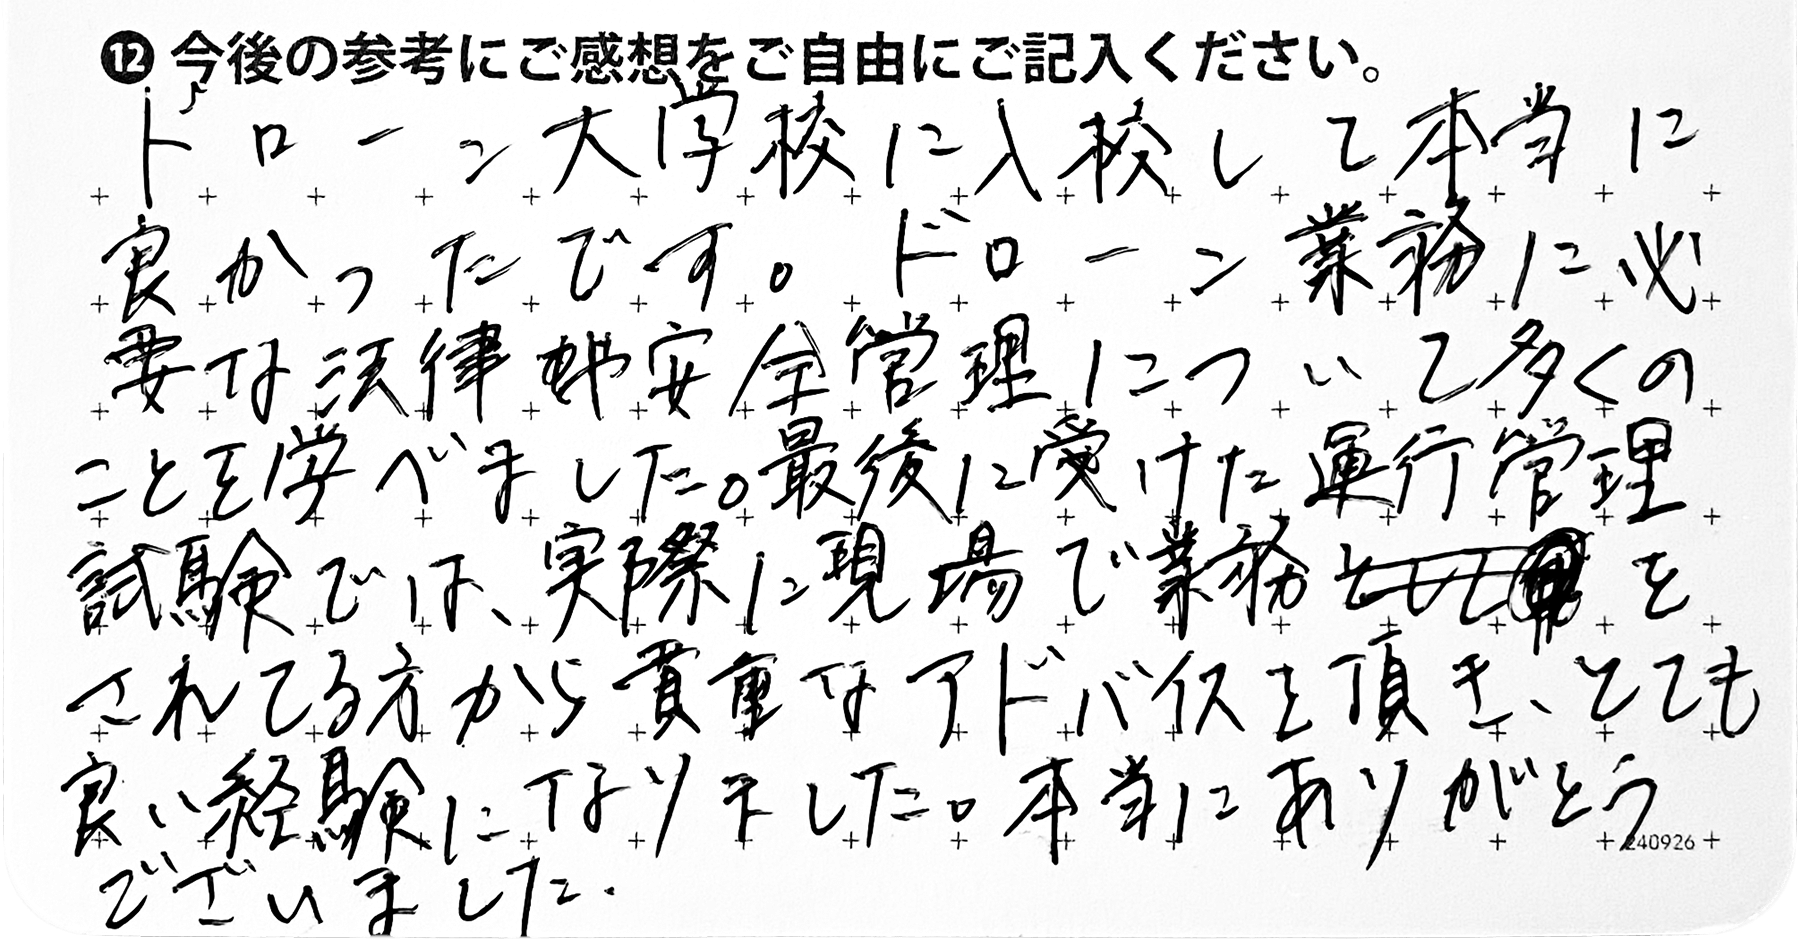 ⓬ 今後の参考にご感想をご自由にご記入ください。
ドローン大学校に入校して本当に
良かったです。ドローン業務に必
要な法律や安全管理について多くの
ことを学べました。最後に受けた運行管理
試験では、実際に現場で業務を
されてる方から貴重なアドバイスを頂き、とても
良い経験になりました。本当にありがとう
240926
ございました.